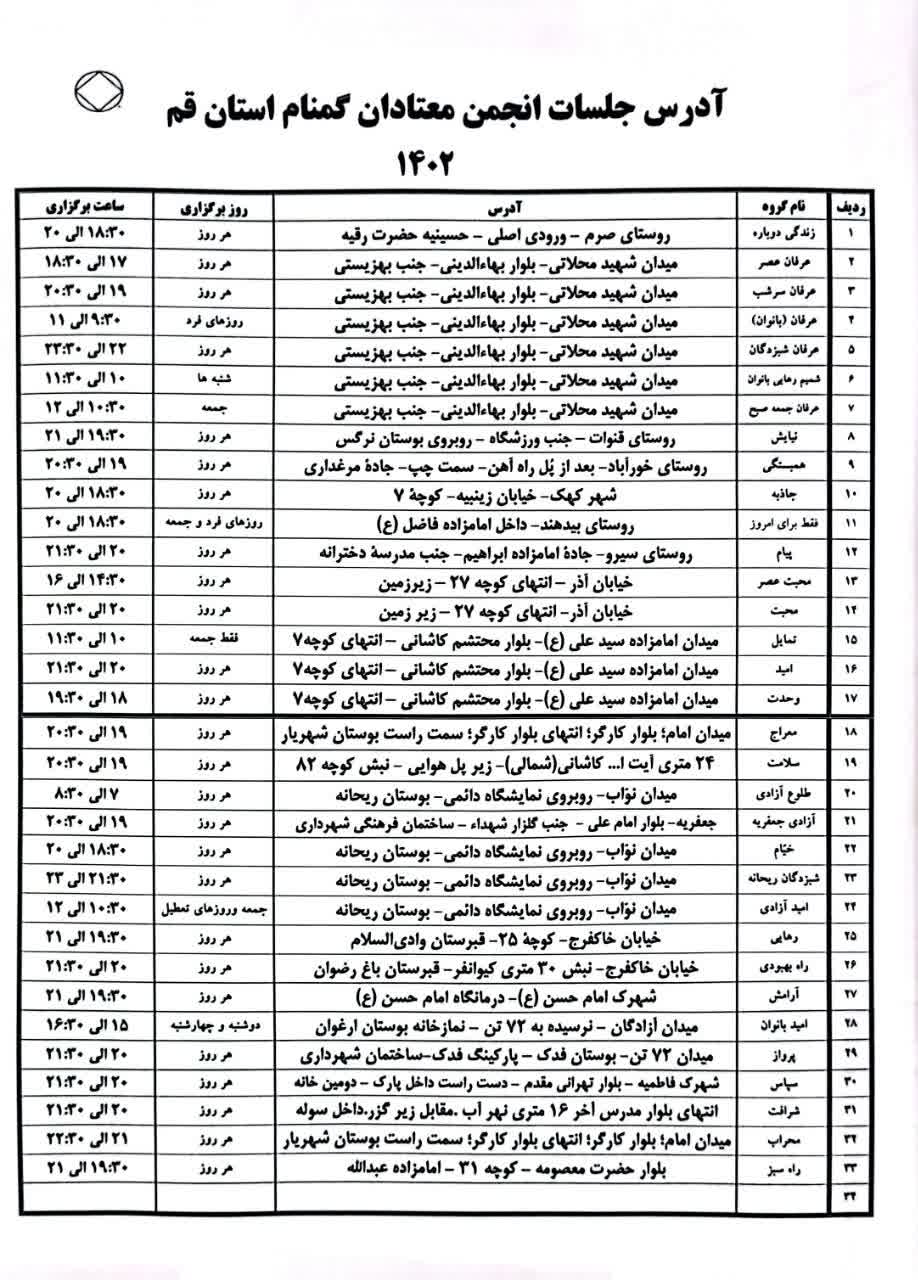 آدرس جلسات انجمن معتادان گمنام استان قم
۱۴۰۲
ردیف نام گروه آدرس روز برگزاری ساعت برگزاری
۱ زندگی دوباره روستای صرم – ورودی اصلی – حسینیه حضرت رقیه هر روز ۱۸:۳۰ الی ۲۰
۲ عرفان عصر میدان شهید محلاتی– بلوار بهاءالدینی– جنب بهزیستی هر روز ۱۷ الی ۱۸:۳۰
۳ عرفان سرشب میدان شهید محلاتی– بلوار بهاءالدینی– جنب بهزیستی هر روز ۱۹ الی ۲۰:۳۰
۴ عرفان (بانوان) میدان شهید محلاتی– بلوار بهاءالدینی– جنب بهزیستی روزهای فرد ۹:۳۰ الی ۱۱
۵ عرفان شبزدگان میدان شهید محلاتی– بلوار بهاءالدینی– جنب بهزیستی هر روز ۲۲ الی ۲۳:۳۰
۶ شمیم رهایی بانوان میدان شهید محلاتی– بلوار بهاءالدینی– جنب بهزیستی شنبه ها ۱۰ الی ۱۱:۳۰
۷ عرفان جمعه صبح میدان شهید محلاتی– بلوار بهاءالدینی– جنب بهزیستی جمعه ۱۰:۳۰ الی ۱۲
۸ نیایش روستای قنوات – جنب ورزشگاه – روبروی بوستان نرگس هر روز ۱۹:۳۰ الی ۲۱
۹ همبستگی روستای خورآباد– بعد از پُل راه آهن– سمت چپ– جادهٔ مرغداری هر روز ۱۹ الی ۲۰:۳۰
۱۰ جاذبه شهر کهک– خیابان زینبیه– کوچهٔ ۷ هر روز ۱۸:۳۰ الی ۲۰
۱۱ فقط برای امروز روستای بیدهند– داخل امامزاده فاضل (ع) روزهای فرد و جمعه ۱۸:۳۰ الی ۲۰
۱۲ پیام روستای سیرو– جادهٔ امامزاده ابراهیم– جنب مدرسهٔ دخترانه هر روز ۲۰ الی ۲۱:۳۰
۱۳ محبت عصر خیابان آذر – انتهای کوچه ۲۷ – زیرزمین هر روز ۱۴:۳۰ الی ۱۶
۱۴ محبت خیابان آذر– انتهای کوچه ۲۷ – زیر زمین هر روز ۲۰ الی ۲۱:۳۰
۱۵ تمایل میدان امامزاده سید علی (ع)– بلوار محتشم کاشانی – انتهای کوچه۷ فقط جمعه ۱۰ الی ۱۱:۳۰
۱۶ امید میدان امامزاده سید علی (ع)– بلوار محتشم کاشانی – انتهای کوچه۷ هر روز ۲۰ الی ۲۱:۳۰
۱۷ وحدت میدان امامزاده سید علی (ع)– بلوار محتشم کاشانی – انتهای کوچه۷ هر روز ۱۸ الی ۱۹:۳۰
۱۸ معراج میدان امام؛ بلوار کارگر؛ انتهای بلوار کارگر؛ سمت راست بوستان شهریار هر روز ۱۹ الی ۲۰:۳۰
۱۹ سلامت ۲۴ متری آیت ا... کاشانی(شمالی)– زیر پل هوایی – نبش کوچه ۸۲ هر روز ۱۹ الی ۲۰:۳۰
۲۰ طلوع آزادی میدان نوّاب– روبروی نمایشگاه دائمی– بوستان ریحانه هر روز ۷ الی ۸:۳۰
۲۱ آزادی جعفریه جعفریه– بلوار امام علی – جنب گلزار شهداء – ساختمان فرهنگی شهرداری هر روز ۱۹ الی ۲۰:۳۰
۲۲ خیّام میدان نوّاب– روبروی نمایشگاه دائمی– بوستان ریحانه هر روز ۱۸:۳۰ الی ۲۰
۲۳ شبزدگان ریحانه میدان نوّاب– روبروی نمایشگاه دائمی– بوستان ریحانه هر روز ۲۱:۳۰ الی ۲۳
۲۴ امید آزادی میدان نوّاب– روبروی نمایشگاه دائمی– بوستان ریحانه جمعه وروزهای تعطیل ۱۰:۳۰ الی ۱۲
۲۵ رهایی خیابان خاکفرج– کوچهٔ ۲۵– قبرستان وادی‌السلام هر روز ۱۹:۳۰ الی ۲۱
۲۶ راه بهبودی خیابان خاکفرج– نبش ۳۰ متری کیوانفر– قبرستان باغ رضوان هر روز ۲۰ الی ۲۱:۳۰
۲۷ آرامش شهرک امام حسن (ع)– درمانگاه امام حسن (ع) هر روز ۱۹:۳۰ الی ۲۱
۲۸ امید بانوان میدان آزادگان – نرسیده به ۷۲ تن – نمازخانه بوستان ارغوان دوشنبه و چهارشنبه ۱۵ الی ۱۶:۳۰
۲۹ پرواز میدان ۷۲ تن– بوستان فدک – پارکینگ فدک–ساختمان شهرداری هر روز ۲۰ الی ۲۱:۳۰
۳۰ سپاس شهرک فاطمیه – بلوار تهرانی مقدم – دست راست داخل پارک – دومین خانه هر روز ۲۰ الی ۲۱:۳۰
۳۱ شرافت انتهای بلوار مدرس آخر ۱۶ متری نهر آب .مقابل زیر گزر.داخل سوله هر روز ۲۰ الی ۲۱:۳۰
۳۲ محراب میدان امام؛ بلوار کارگر؛ انتهای بلوار کارگر؛ سمت راست بوستان شهریار هر روز ۲۱ الی ۲۲:۳۰
۳۳ راه سبز بلوار حضرت معصومه – کوچه ۳۱ – امامزاده عبدالله هر روز ۱۹:۳۰ الی ۲۱
۳۴